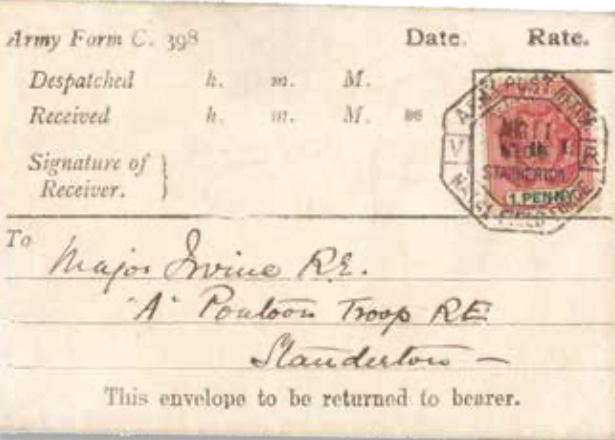 Army Form C. 398 Date. Rate.
Despatched h. m. M.
Received h. m. M.
Signature of
Receiver. }
ARMY POST OFFICE
V R
STANDERTON
NATAL FIELD FORCE
1 PENNY
To
Major Irvine R.E.
"A" Pontoon Troop R.E.
Standerton —
This envelope to be returned to bearer.